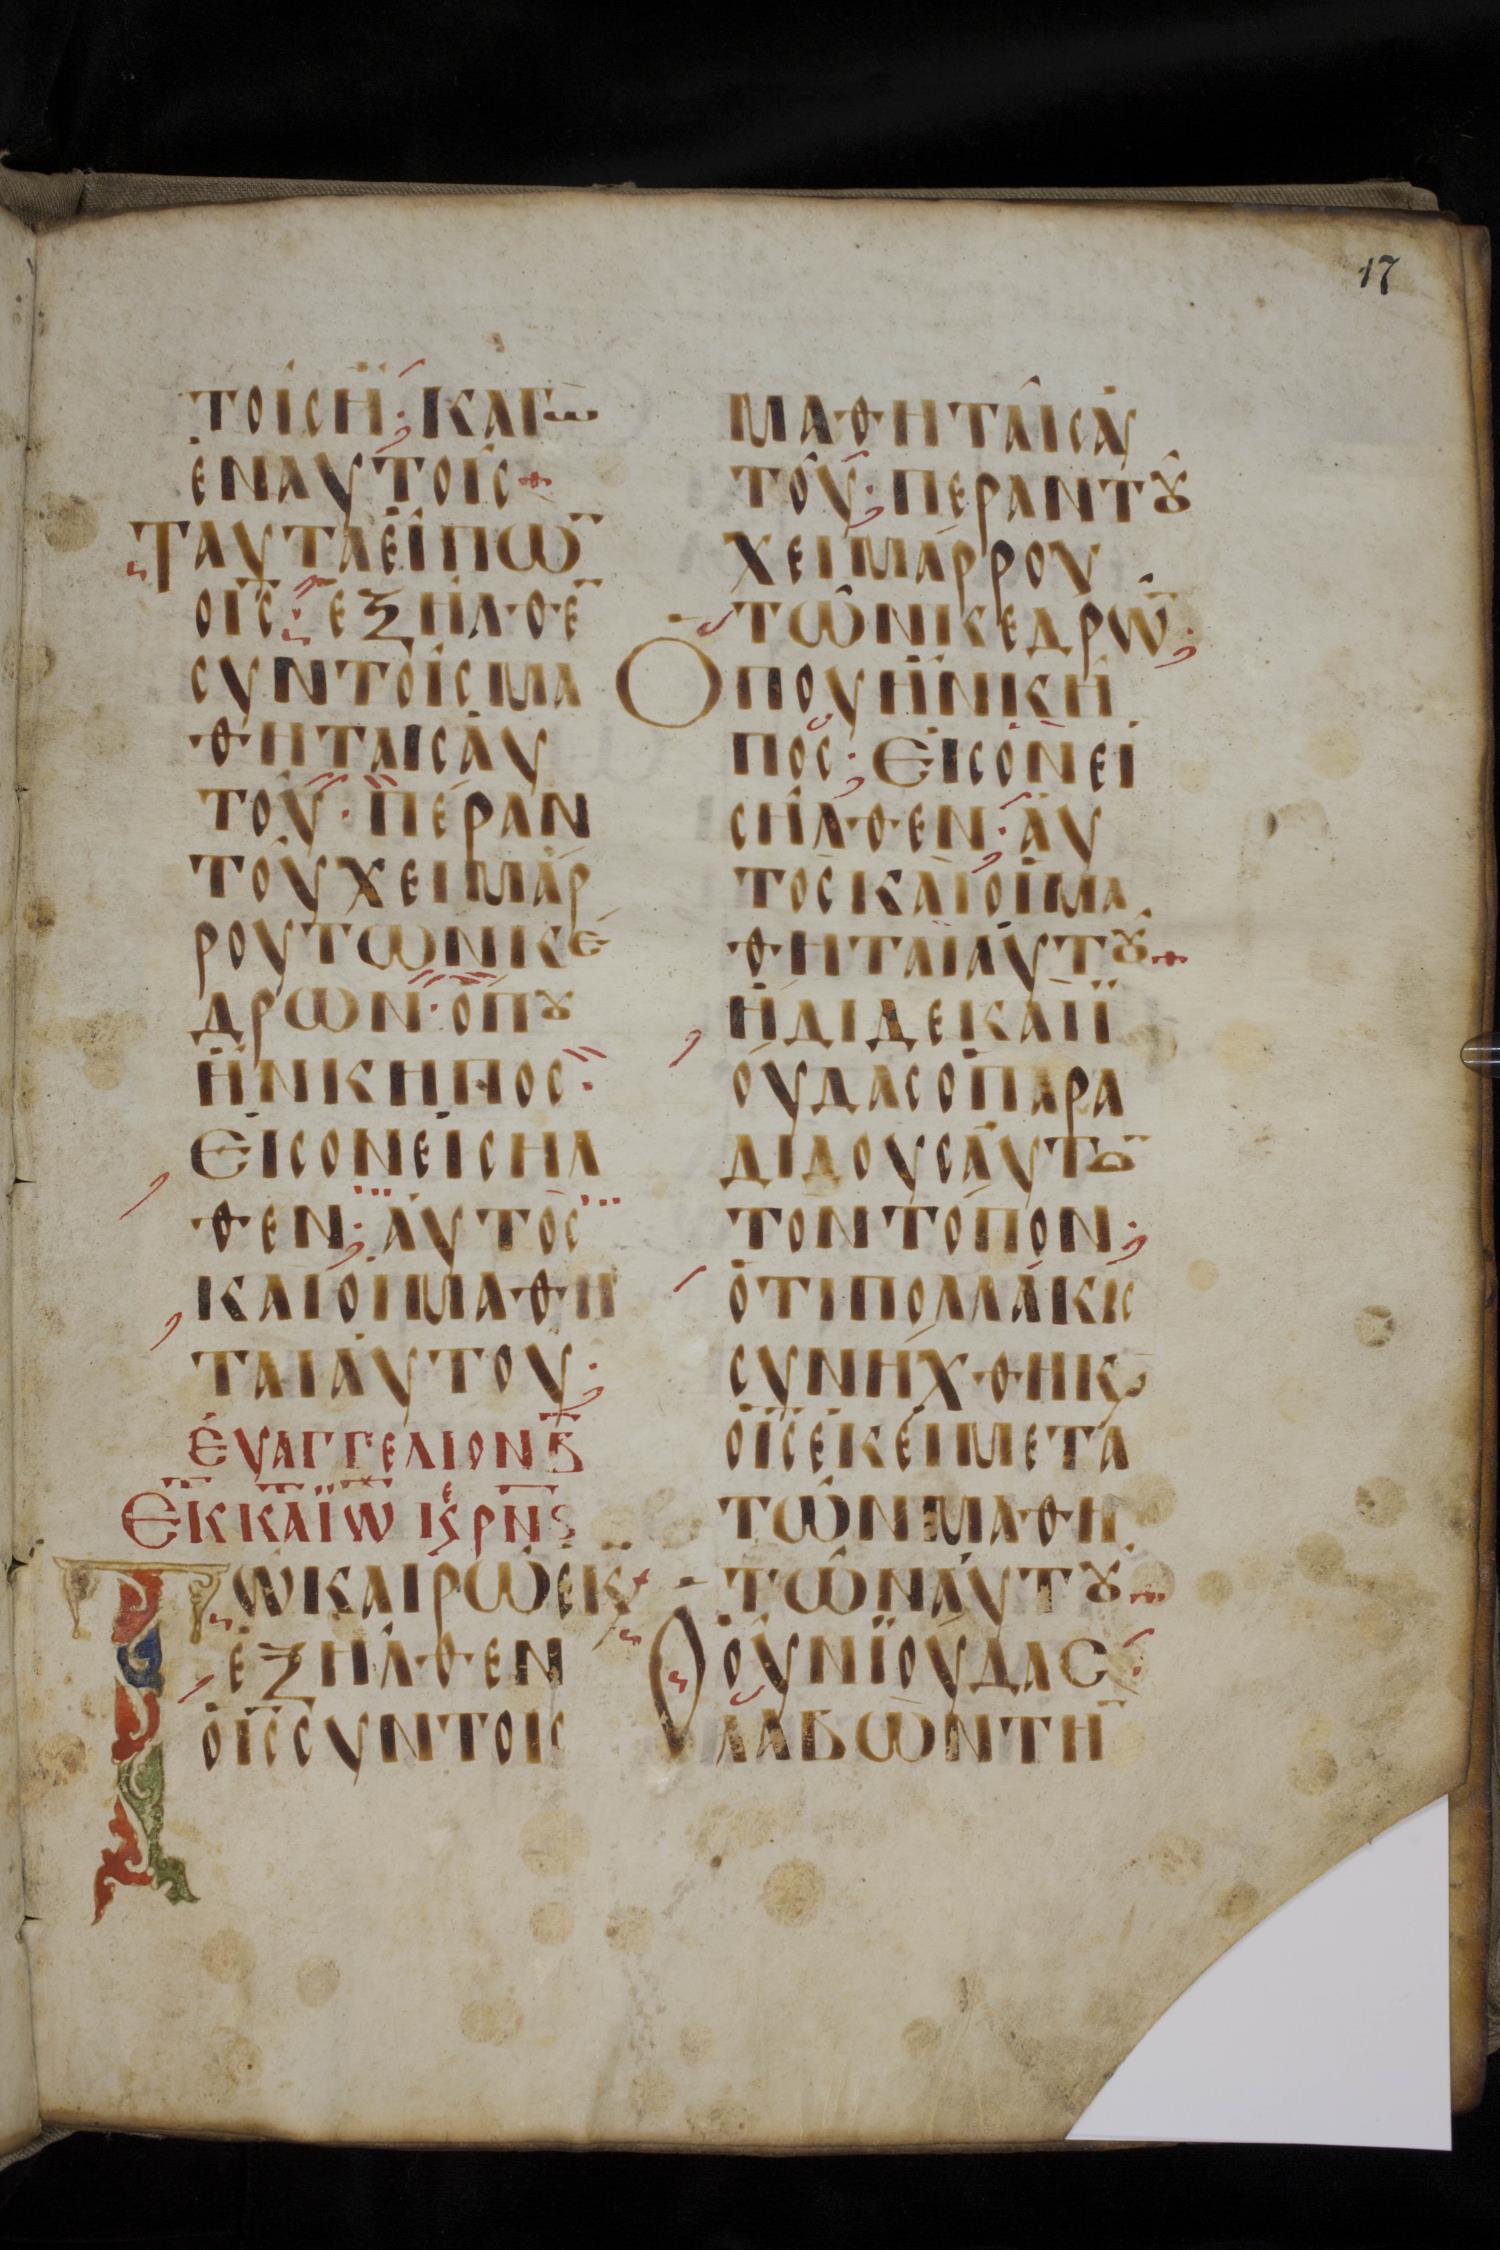 17
ΤΟΙCΗ͂· ΚΑΓΩ
ΕΝΑΥΤΟΙC+
ΤΑΥΤΑΕΙΠΩ̅
ΟΙ̅C̅· ΕΞΗΛΘΕ̅
CΥΝΤΟΙCΜΑ
ΘΗΤΑΙCΑΥ
ΤΟΥ· ΠΕΡΑΝ
ΤΟΥΧΕΙΜΑΡ
ΡΟΥΤΩΝΚΕ
ΔΡΩΝ· ΟΠȢ
ΗΝΚΗΠΟC·
ΕΙCΟΝΕΙCΗΛ
ΘΕΝ· ΑΥΤΟC
ΚΑΙΟΙΜΑΘΗ
ΤΑΙΑΥΤΟΥ·
ΕΥΑΓΓΕΛΙΟΝΒ̅
ΕΚΚΑΪΩ ΚΕΡΗ̅Ϛ
ΤΩΚΑΙΡΩΕΚ
ΕΞΗΛΘΕΝ
ΟΙ̅C̅CΥΝΤΟΙC
ΜΑΘΗΤΑΙCΑΥ
ΤΟΥ· ΠΕΡΑΝΤȢ
ΧΕΙΜΑΡΡΟΥ
ΤΩΝΚΕΔΡΩ̅·
ΟΠΟΥΗΝΚΗ
ΠΟC· ΕΙCΟΝΕΙ
CΗΛΘΕΝ· ΑΥ
ΤΟCΚΑΙΟΙΜΑ
ΘΗΤΑΙΑΥΤȢ+
ΗΔΙΔΕΚΑΙΪ
ΟΥΔΑCΟΠΑΡΑ
ΔΙΔΟΥCΑΥΤΟ̅
ΤΟΝΤΟΠΟΝ·
ΟΤΙΠΟΛΛΑΚΙC
CΥΝΗΧΘΗΚϗ
ΟΙ̅C̅ΕΚΕΙΜΕΤΑ
ΤΩΝΜΑΘΗ
ΤΩΝΑΥΤȢ+
ΟΟΥΝΪΟΥΔΑC·
ΛΑΒΩΝΤΗ̅